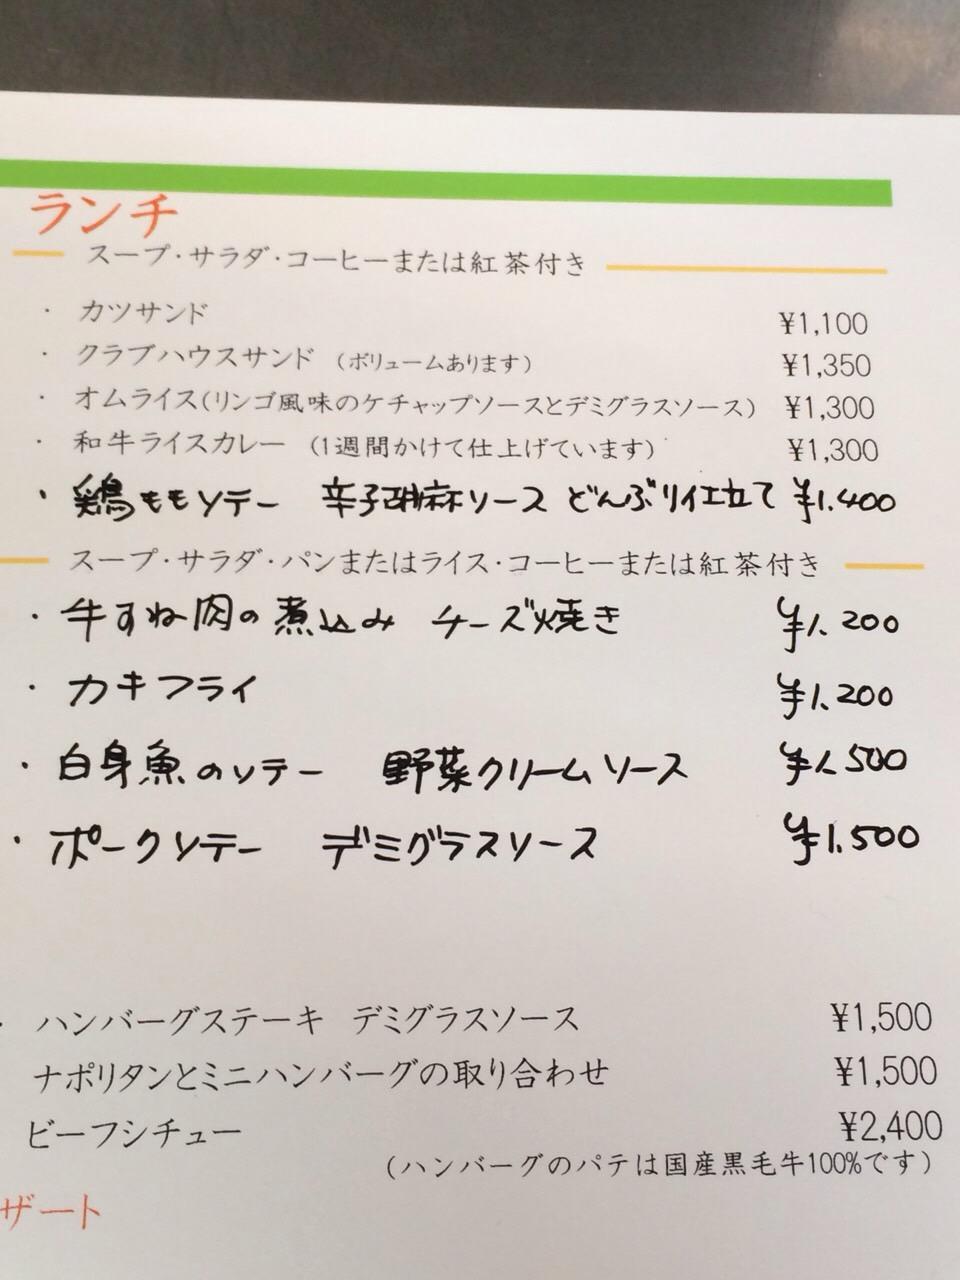 ランチ
スープ・サラダ・コーヒーまたは紅茶付き
・ カツサンド ¥1,100
・ クラブハウスサンド (ボリュームあります) ¥1,350
・ オムライス(リンゴ風味のケチャップソースとデミグラスソース) ¥1,300
・ 和牛ライスカレー (1週間かけて仕上げています) ¥1,300
・ 鶏ももソテー 辛子胡麻ソース どんぶり仕立て ¥1.400
スープ・サラダ・パンまたはライス・コーヒーまたは紅茶付き
・ 牛すね肉の煮込み チーズ焼き ¥1.200
・ カキフライ ¥1.200
・ 白身魚のソテー 野菜クリームソース ¥1.500
・ ポークソテー デミグラスソース ¥1.500
・ ハンバーグステーキ デミグラスソース ¥1,500
ナポリタンとミニハンバーグの取り合わせ ¥1,500
ビーフシチュー ¥2,400
(ハンバーグのパテは国産黒毛牛100%です)
ザート